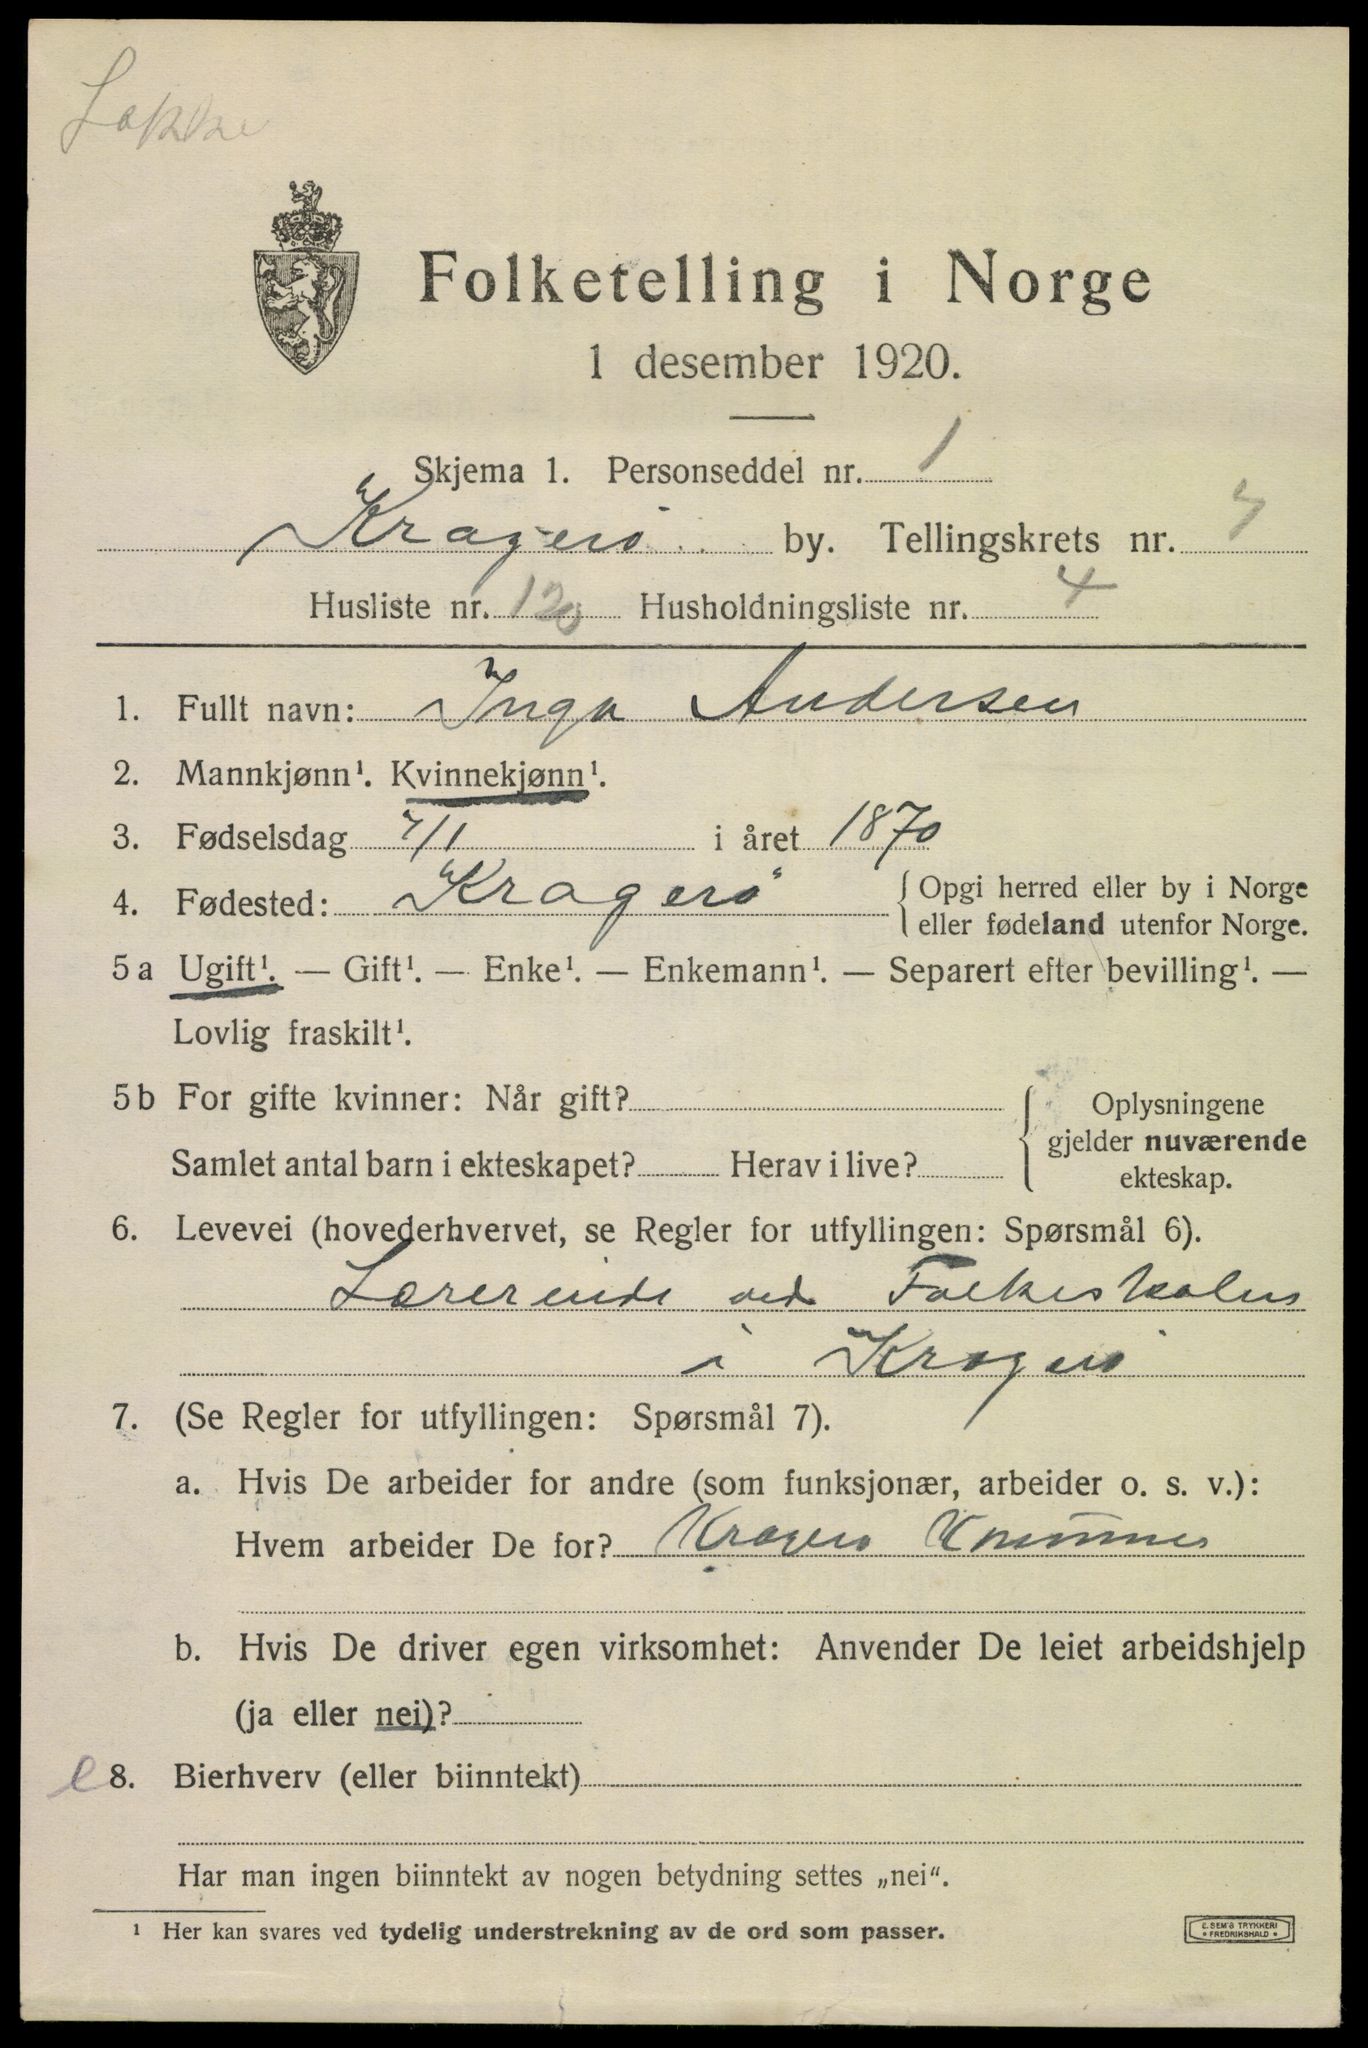 Løkke
Folketelling i Norge
1 desember 1920.
Skjema 1. Personseddel nr. 1
Kragerö by. Tellingskrets nr. 7
Husliste nr. 120 Husholdningsliste nr. 4
1. Fullt navn: Inga Andersen
2. Mannkjønn¹. Kvinnekjønn¹.
3. Fødselsdag 7/1 i året 1870
4. Fødested: Kragerö { Opgi herred eller by i Norge
eller fødeland utenfor Norge.
5 a Ugift¹. — Gift¹. — Enke¹. — Enkemann¹. — Separert efter bevilling¹. —
Lovlig fraskilt¹.
5 b For gifte kvinner: Når gift?
Samlet antal barn i ekteskapet? Herav i live?
Oplysningene
gjelder nuværende
ekteskap.
6. Levevei (hovederhvervet, se Regler for utfyllingen: Spørsmål 6).
Lærerinde ved Folkeskolen
i Kragerö
7. (Se Regler for utfyllingen: Spørsmål 7).
a. Hvis De arbeider for andre (som funksjonær, arbeider o. s. v.):
Hvem arbeider De for? Kragerö Kommune
b. Hvis De driver egen virksomhet: Anvender De leiet arbeidshjelp
(ja eller nei)?
8. Bierhverv (eller biinntekt)
Har man ingen biinntekt av nogen betydning settes „nei“.
¹ Her kan svares ved tydelig understrekning av de ord som passer.
E. SEM'S TRYKKERI
• FREDRIKSHALD •